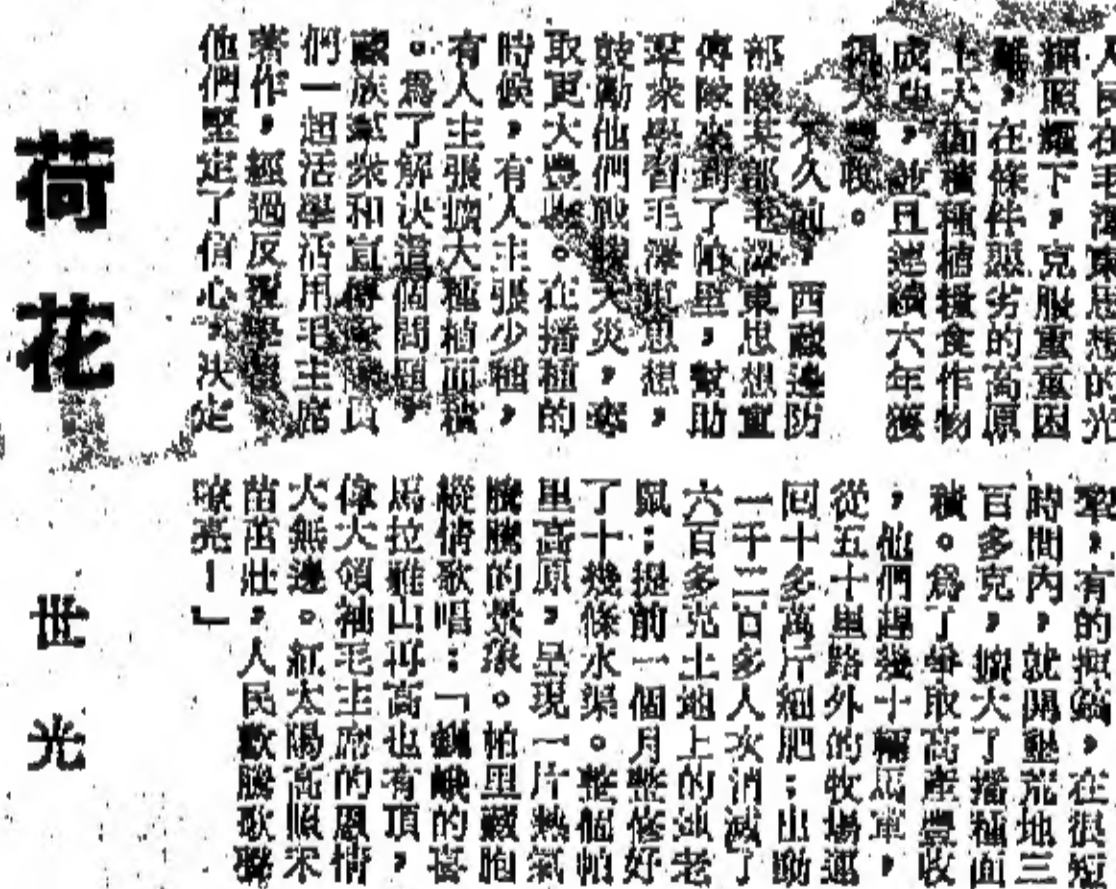 人民在毛澤東思想的光
輝照耀下，克服重重困
難，在條件惡劣的高原
上大面積種植糧食作物
成功，並且連續六年獲
得大豐收。
不久前，西藏邊防
部隊某部毛澤東思想宣
傳隊來到了帕里，幫助
羣衆學習毛澤東思想，
鼓勵他們戰勝天災，奪
取更大豐收。在播種的
時候，有人主張少種，
有人主張擴大種植面積
。爲了解決這個問題，
藏族羣衆和宣傳隊員
們一起活學活用毛主席
著作，經過反覆學習，
他們堅定了信心，決定
擊，有的揮鎬，在很短
時間內，就開墾荒地三
百多克，擴大了播種面
積。爲了爭取高產豐收
，他們趕幾十輛馬車，
從五十里路外的牧場運
回十多萬斤細肥；出動
一千二百多人次消滅了
六百多克土地上的地老
鼠；提前一個月整修好
了十幾條水渠。整個帕
里高原，呈現一片熱氣
騰騰的景象。帕里藏胞
縱情歌唱：「巍峨的喜
馬拉雅山再高也有頂，
偉大領袖毛主席的恩情
大無邊。紅太陽高照禾
苗茁壯，人民歡騰歌聲
嘹亮！」
荷花
世光